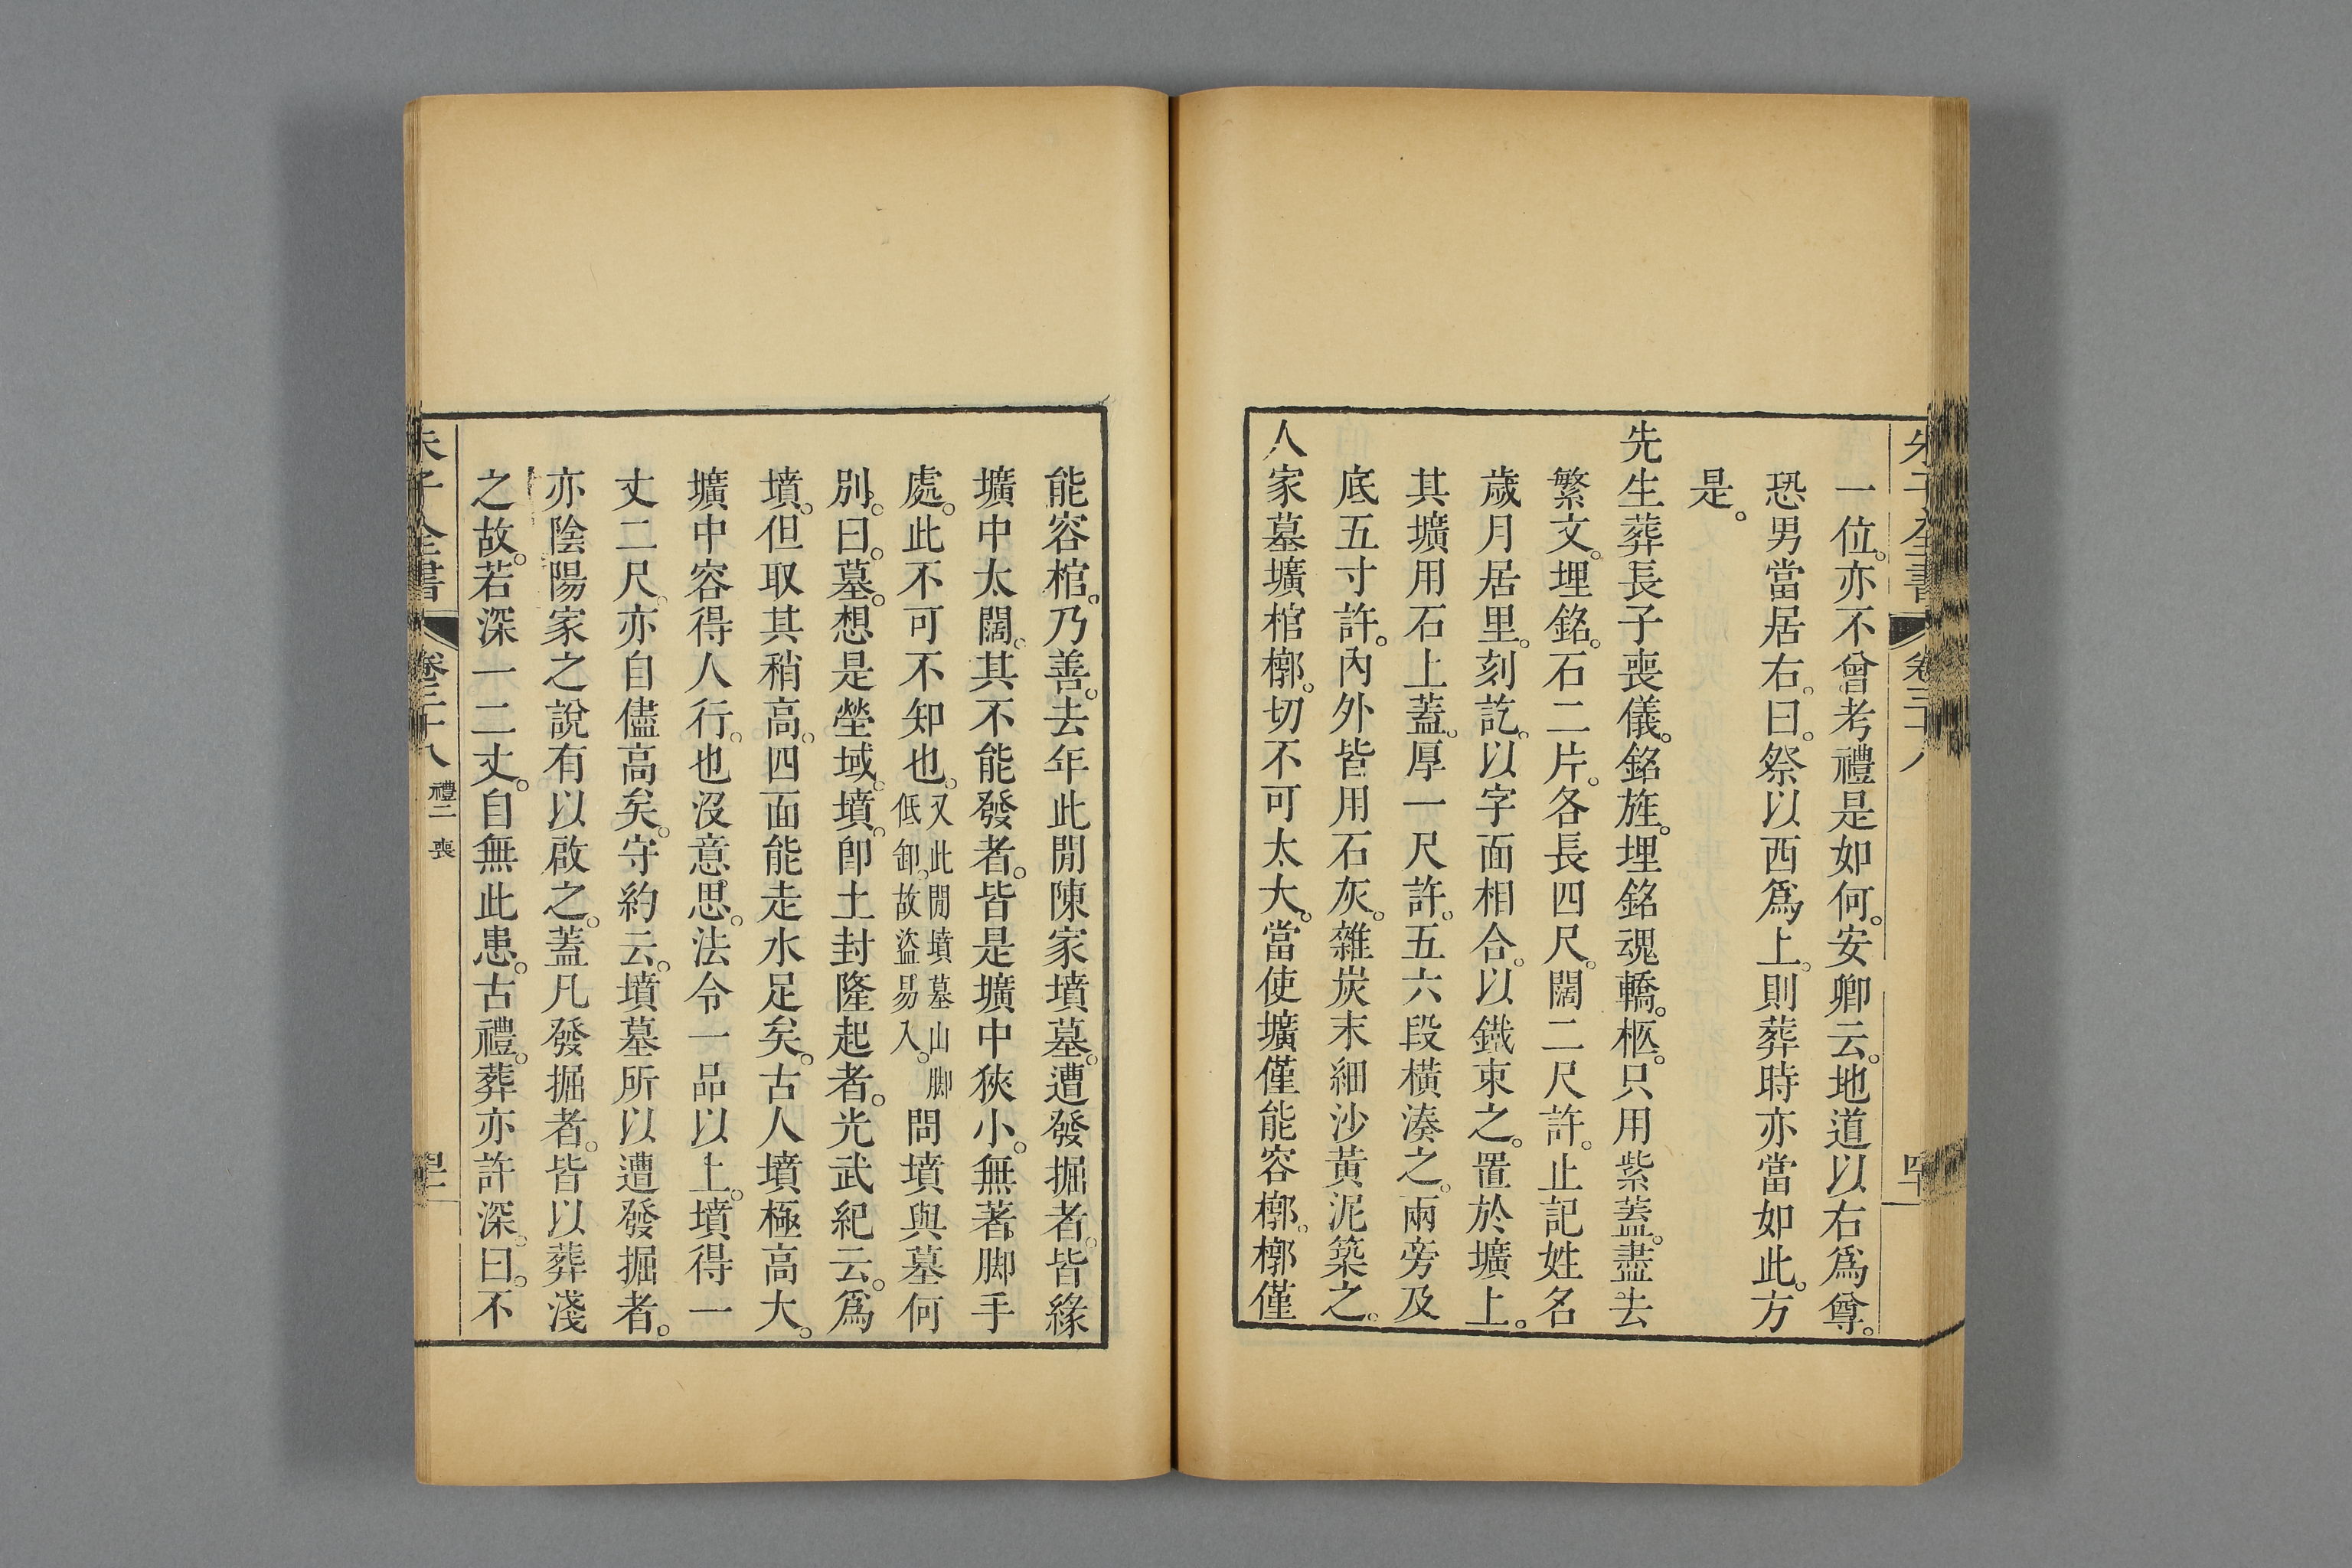 朱子全書 卷三十八
一位。亦不曾考禮是如何。安卿云。地道以右爲尊。
恐男當居右。曰。祭以西爲上。則葬時亦當如此。方
是。
先生葬長子喪儀。銘旌。埋銘魂轎。柩。只用紫蓋。盡去
繁文。埋銘。石二片。各長四尺。闊二尺許。止記姓名
歲月居里。刻訖。以字面相合。以鐵束之。置於壙上。
其壙用石上蓋。厚一尺許。五六段橫湊之。兩旁及
底五寸許。內外皆用石灰。雜炭末細沙黃泥築之。
人家墓壙棺槨。切不可太大。當使壙僅能容槨。槨僅
能容棺。乃善。去年此閒陳家墳墓。遭發掘者。皆緣
壙中太闊。其不能發者。皆是壙中狹小。無著脚手
處。此不可不知也。又此閒墳墓山脚低卸。故盜易入。問墳與墓何
別。曰。墓。想是塋域。墳。卽土封隆起者。光武紀云。爲
墳。但取其稍高。四面能走水足矣。古人墳極高大。
壙中容得人行。也沒意思。法令一品以上。墳得一
丈二尺。亦自儘高矣。守約云。墳墓所以遭發掘者。
亦陰陽家之說有以啟之。蓋凡發掘者。皆以葬淺
之故。若深一二丈。自無此患。古禮。葬亦許深。曰。不
朱子全書 卷三十八 禮二 喪